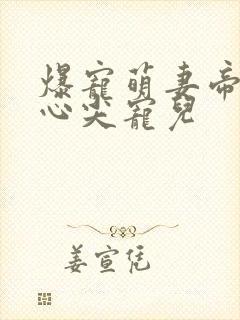 爆寵萌妻帝
心尖寵兒
姜宣恁